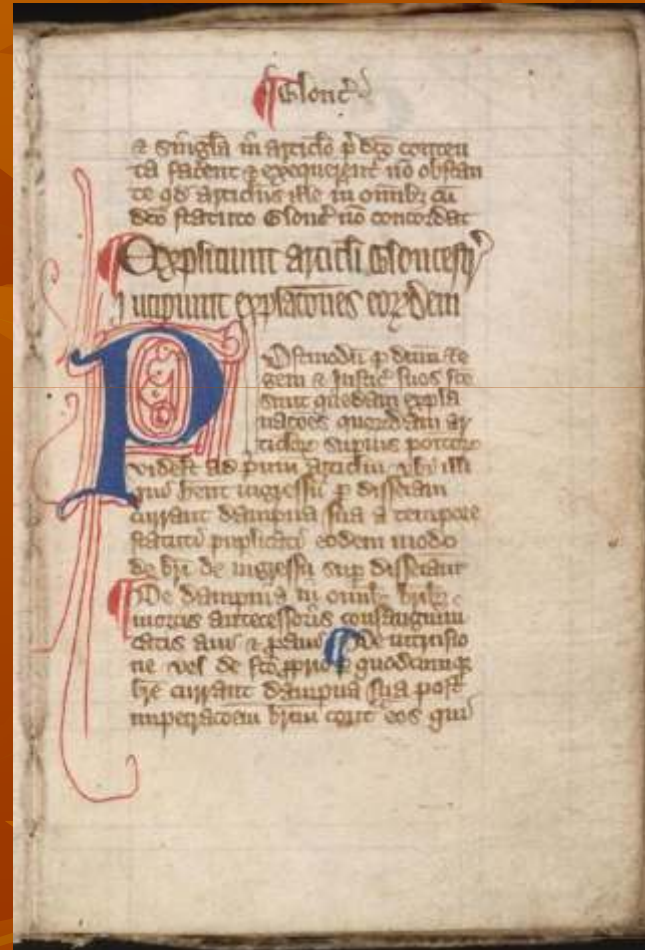 ¶ Glouc̄
& singl̄a in articlo p̄ dc̄o conten
ta facent & exequerent̄ nō obstan
te qd̄ articlus ille in omnibȝ cū
dc̄o statuto Glouc̄ nō concordat
¶ Expliciunt articli Gloucestr̄
Incipiunt explac̄ones eorȝdem
Postmodū p dnm̄ Re
gem & Justic̄ suos fc̄e
sunt quedam expla
nac̄oes quorȝdam ar
ticlorȝ supius
videlt̄ ad p̄mū articlm̄ ubi illi
qui h̄ent ingressū p disseiam
currant dampna sua a tempore
statuti puplicati eodem modo
de br̄i de ingressu sup disseiam
¶ De dampnia in omibȝ br̄ibȝ
mortis antecessoris consanguini
tatis aui & p̄aui ¶ De intrusio
ne vel de fc̄o pprio p quodcumqȝ
br̄e currant dampna sua post
impetrac̄oem br̄ium cont̄ eos qui